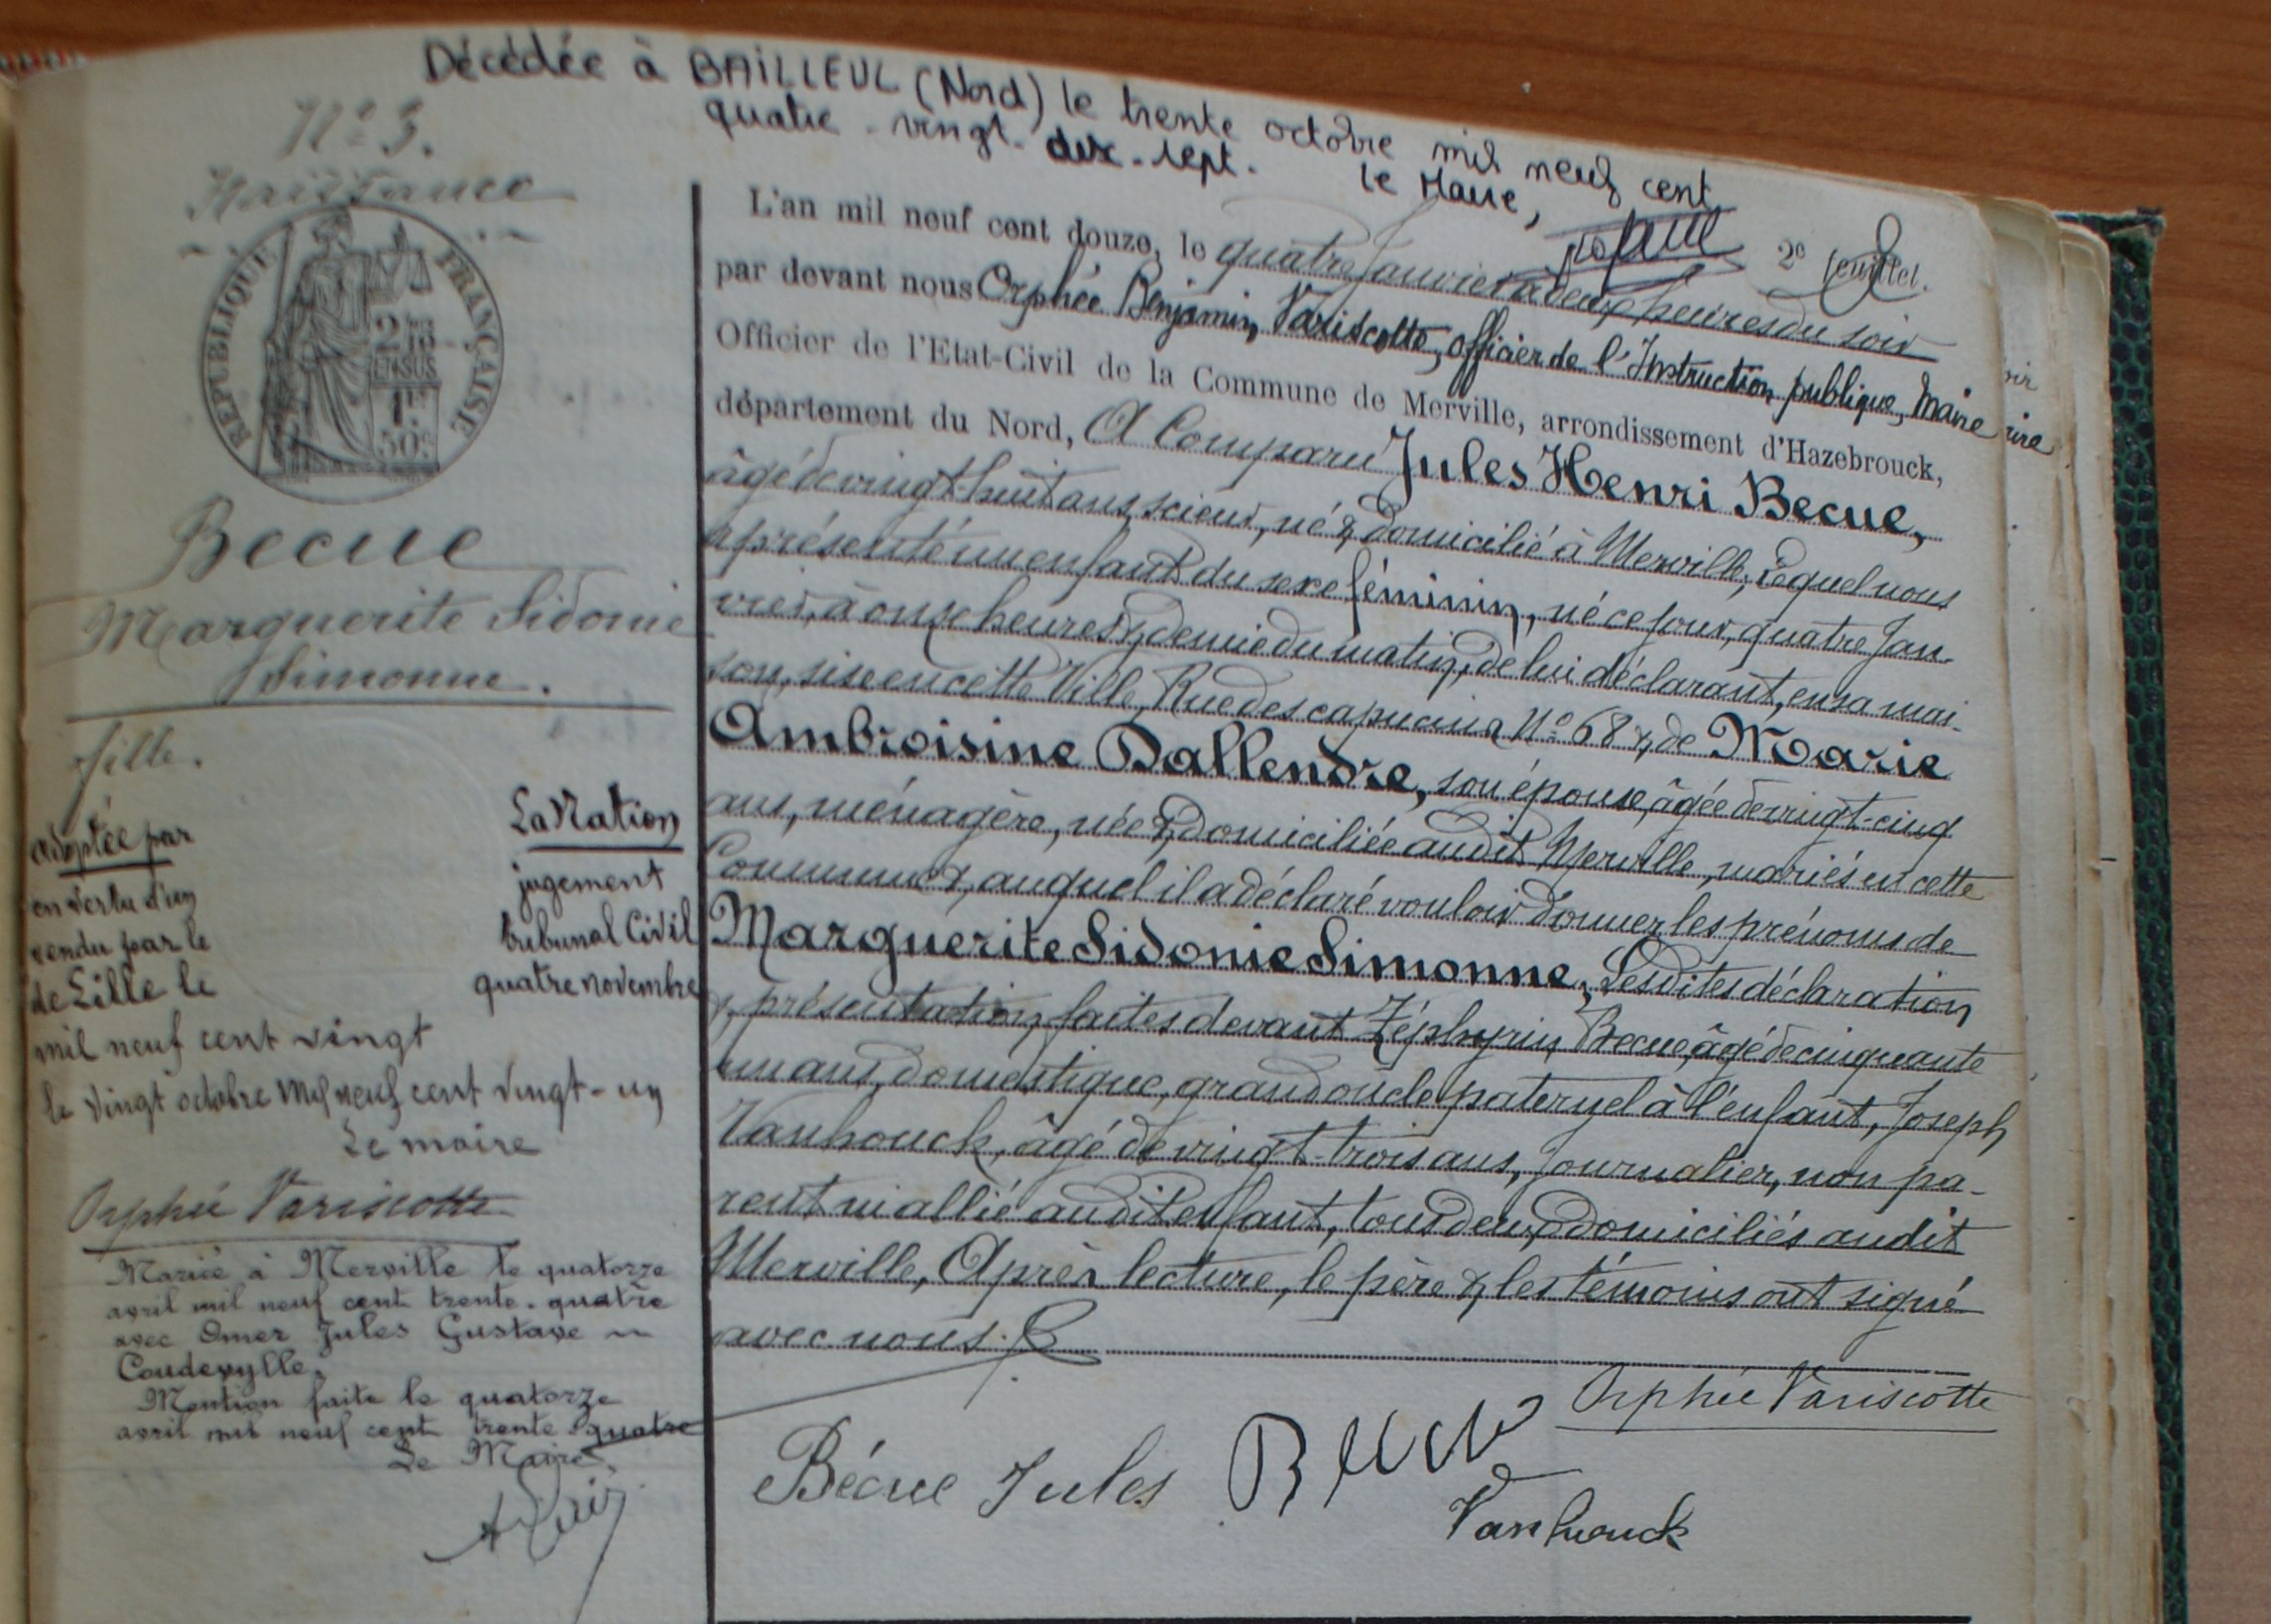 Décédée à BAILLEUL (Nord) le trente octobre mil neuf cent
quatre-vingt-dix-sept. le Maire,
2e feuillet.
No 3.
Naissance
RÉPUBLIQUE FRANÇAISE
2/10
ET SUS
1F
50c
Becue
Marguerite Sidonie
Simonne.
fille.
adoptée par La Nation
en vertu d'un jugement
rendu par le tribunal Civil
de Lille le quatre novembre
mil neuf cent vingt
le vingt octobre Mil neuf cent vingt-un
Le maire
Orphée Variscotte
Mariée à Merville le quatorze
avril mil neuf cent trente-quatre
avec Omer Jules Gustave
Coudevylle.
Mention faite le quatorze
avril mil neuf cent trente-quatre
Le Maire,
L'an mil neuf cent douze, le quatre Janvier à deux heures du soir
par devant nous Orphée Benjamin Variscotte, officier de l'Instruction publique, Maire
Officier de l'Etat-Civil de la Commune de Merville, arrondissement d'Hazebrouck,
département du Nord, A Comparu Jules Henri Becue,
âgé de vingt-huit ans, scieur, né & domicilié à Merville, Lequel nous
a présenté un enfant du sexe féminin, né ce jour, quatre Jan-
vier, à onze heures & demie du matin, de lui déclarant, en sa mai-
son, sise en cette Ville, Rue des capucins No 68 &, de Marie
Ambroisine Dallendre, son épouse, âgée de vingt-cinq
ans, ménagère, née & domiciliée audit Merville, mariés en cette
Commune &, auquel il a déclaré vouloir donner les prénoms de
Marguerite Sidonie Simonne, Lesdites déclaration
& présentation faites devant Zéphyrin Becue, âgé de cinquante
un ans, domestique, grand oncle paternel à l'enfant, Joseph
Vanhouck, âgé de vingt-trois ans, Journalier, non pa-
rent ni allié audit enfant, tous deux domiciliés audit
Merville, Après lecture, le père & les témoins ont signé
avec nous.
Orphée Variscotte
Bécue Jules Becue
Vanhouck